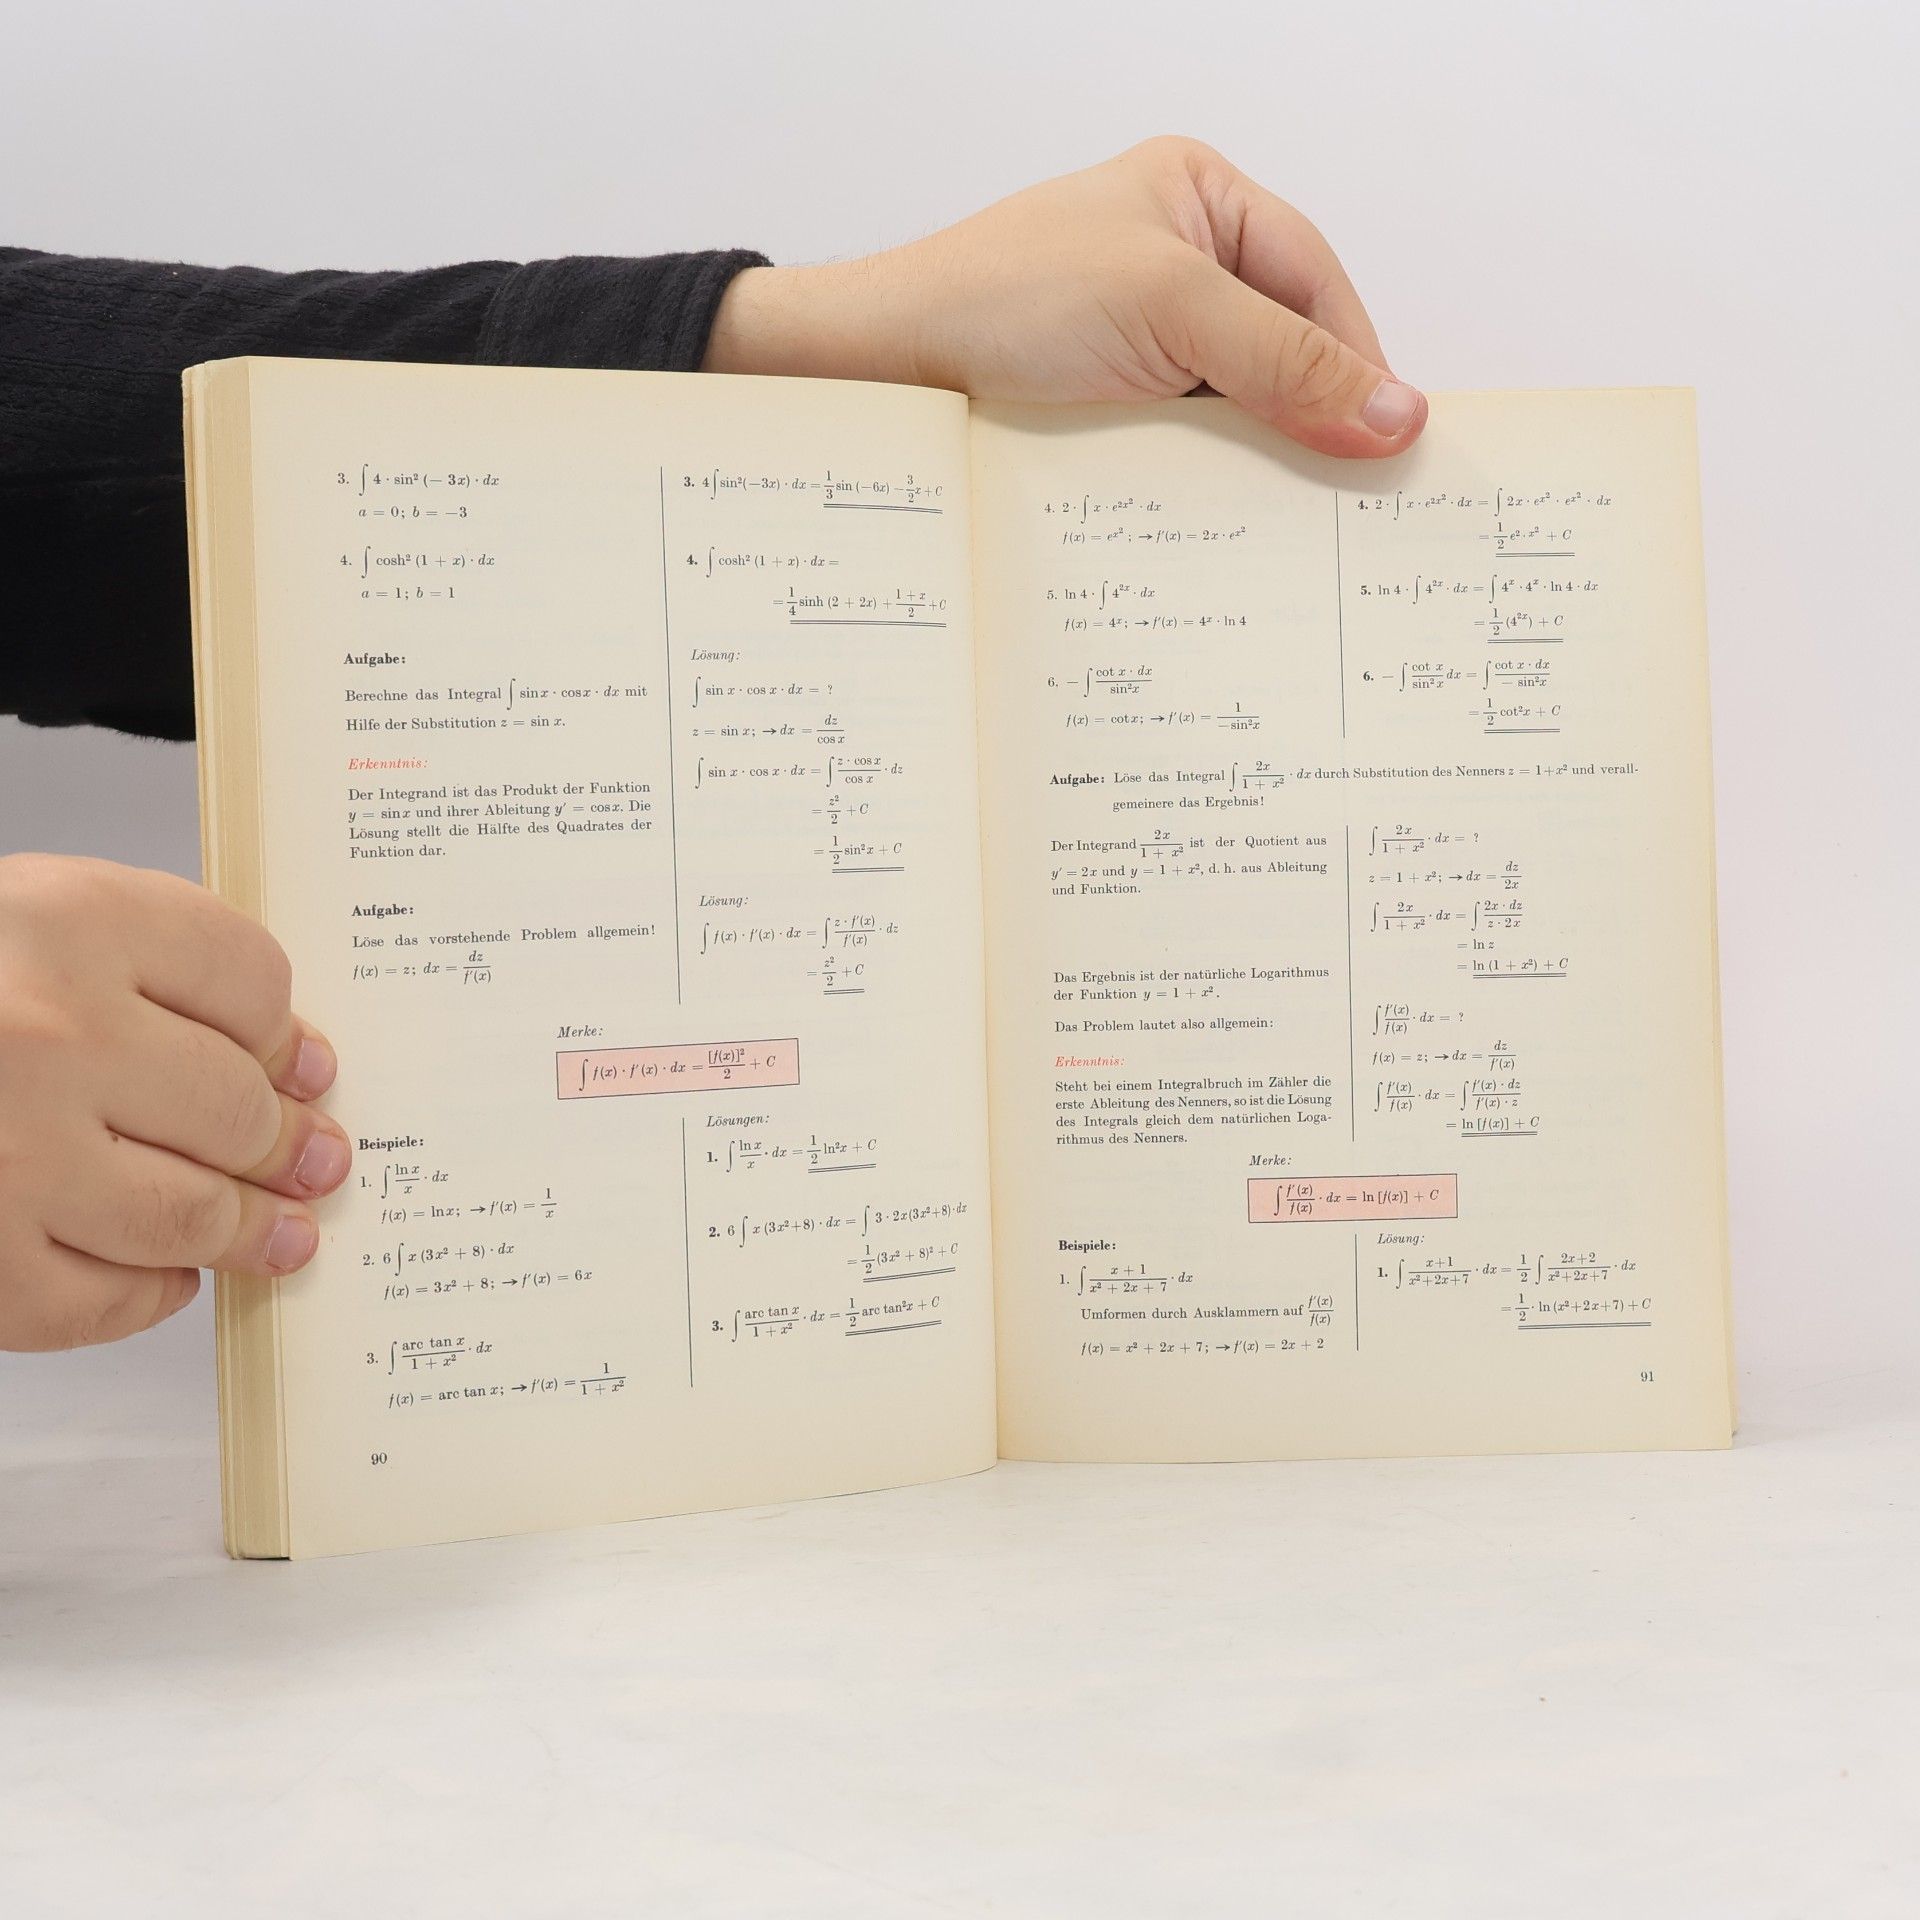 3. ∫ 4 · sin² (− 3x) · dx
a = 0; b = −3
3. 4 ∫ sin²(−3x) · dx = 1/3 sin (−6x) − 3/2 x + C
4. ∫ cosh² (1 + x) · dx
a = 1; b = 1
4. ∫ cosh² (1 + x) · dx =
= 1/4 sinh (2 + 2x) + (1 + x)/2 + C
Aufgabe:
Berechne das Integral ∫ sin x · cos x · dx mit
Hilfe der Substitution z = sin x.
Erkenntnis:
Der Integrand ist das Produkt der Funktion
y = sin x und ihrer Ableitung y′ = cos x. Die
Lösung stellt die Hälfte des Quadrates der
Funktion dar.
Lösung:
∫ sin x · cos x · dx = ?
z = sin x; → dx = dz/cos x
∫ sin x · cos x · dx = ∫ (z · cos x)/cos x · dz
= z²/2 + C
= 1/2 sin² x + C
Aufgabe:
Löse das vorstehende Problem allgemein!
f(x) = z; dx = dz/f′(x)
Lösung:
∫ f(x) · f′(x) · dx = ∫ (z · f′(x))/f′(x) · dz
= z²/2 + C
Merke:
∫ f(x) · f′(x) · dx = [f(x)]²/2 + C
Beispiele:
1. ∫ ln x/x · dx
f(x) = ln x; → f′(x) = 1/x
2. 6 ∫ x (3x² + 8) · dx
f(x) = 3x² + 8; → f′(x) = 6x
3. ∫ arc tan x/(1 + x²) · dx
f(x) = arc tan x; → f′(x) = 1/(1 + x²)
Lösungen:
1. ∫ ln x/x · dx = 1/2 ln² x + C
2. 6 ∫ x (3x² + 8) · dx = ∫ 3 · 2x (3x² + 8) · dx
= 1/2 (3x² + 8)² + C
3. ∫ arc tan x/(1 + x²) · dx = 1/2 arc tan² x + C
90
4. 2 · ∫ x · e^(2x²) · dx
f(x) = e^(x²); → f′(x) = 2x · e^(x²)
4. 2 · ∫ x · e^(2x²) · dx = ∫ 2x · e^(x²) · e^(x²) · dx
= 1/2 e^(2 · x²) + C
5. ln 4 · ∫ 4^(2x) · dx
f(x) = 4^x; → f′(x) = 4^x · ln 4
5. ln 4 · ∫ 4^(2x) · dx = ∫ 4^x · 4^x · ln 4 · dx
= 1/2 (4^(2x)) + C
6. − ∫ (cot x · dx)/sin² x
f(x) = cot x; → f′(x) = 1/(− sin² x)
6. − ∫ cot x/sin² x dx = ∫ (cot x · dx)/(− sin² x)
= 1/2 cot² x + C
Aufgabe: Löse das Integral ∫ 2x/(1 + x²) · dx durch Substitution des Nenners z = 1 + x² und verall-
gemeinere das Ergebnis!
Der Integrand 2x/(1 + x²) ist der Quotient aus
y′ = 2x und y = 1 + x², d. h. aus Ableitung
und Funktion.
Das Ergebnis ist der natürliche Logarithmus
der Funktion y = 1 + x².
Das Problem lautet also allgemein:
Erkenntnis:
Steht bei einem Integralbruch im Zähler die
erste Ableitung des Nenners, so ist die Lösung
des Integrals gleich dem natürlichen Loga-
rithmus des Nenners.
∫ 2x/(1 + x²) · dx = ?
z = 1 + x²; → dx = dz/2x
∫ 2x/(1 + x²) · dx = ∫ (2x · dz)/(z · 2x)
= ln z
= ln (1 + x²) + C
∫ f′(x)/f(x) · dx = ?
f(x) = z; → dx = dz/f′(x)
∫ f′(x)/f(x) · dx = ∫ (f′(x) · dz)/(f′(x) · z)
= ln [f(x)] + C
Merke:
∫ f′(x)/f(x) · dx = ln [f(x)] + C
Beispiele:
1. ∫ (x + 1)/(x² + 2x + 7) · dx
Umformen durch Ausklammern auf f′(x)/f(x)
f(x) = x² + 2x + 7; → f′(x) = 2x + 2
Lösung:
1. ∫ (x+1)/(x²+2x+7) · dx = 1/2 ∫ (2x+2)/(x²+2x+7) · dx
= 1/2 · ln (x²+2x+7) + C
91